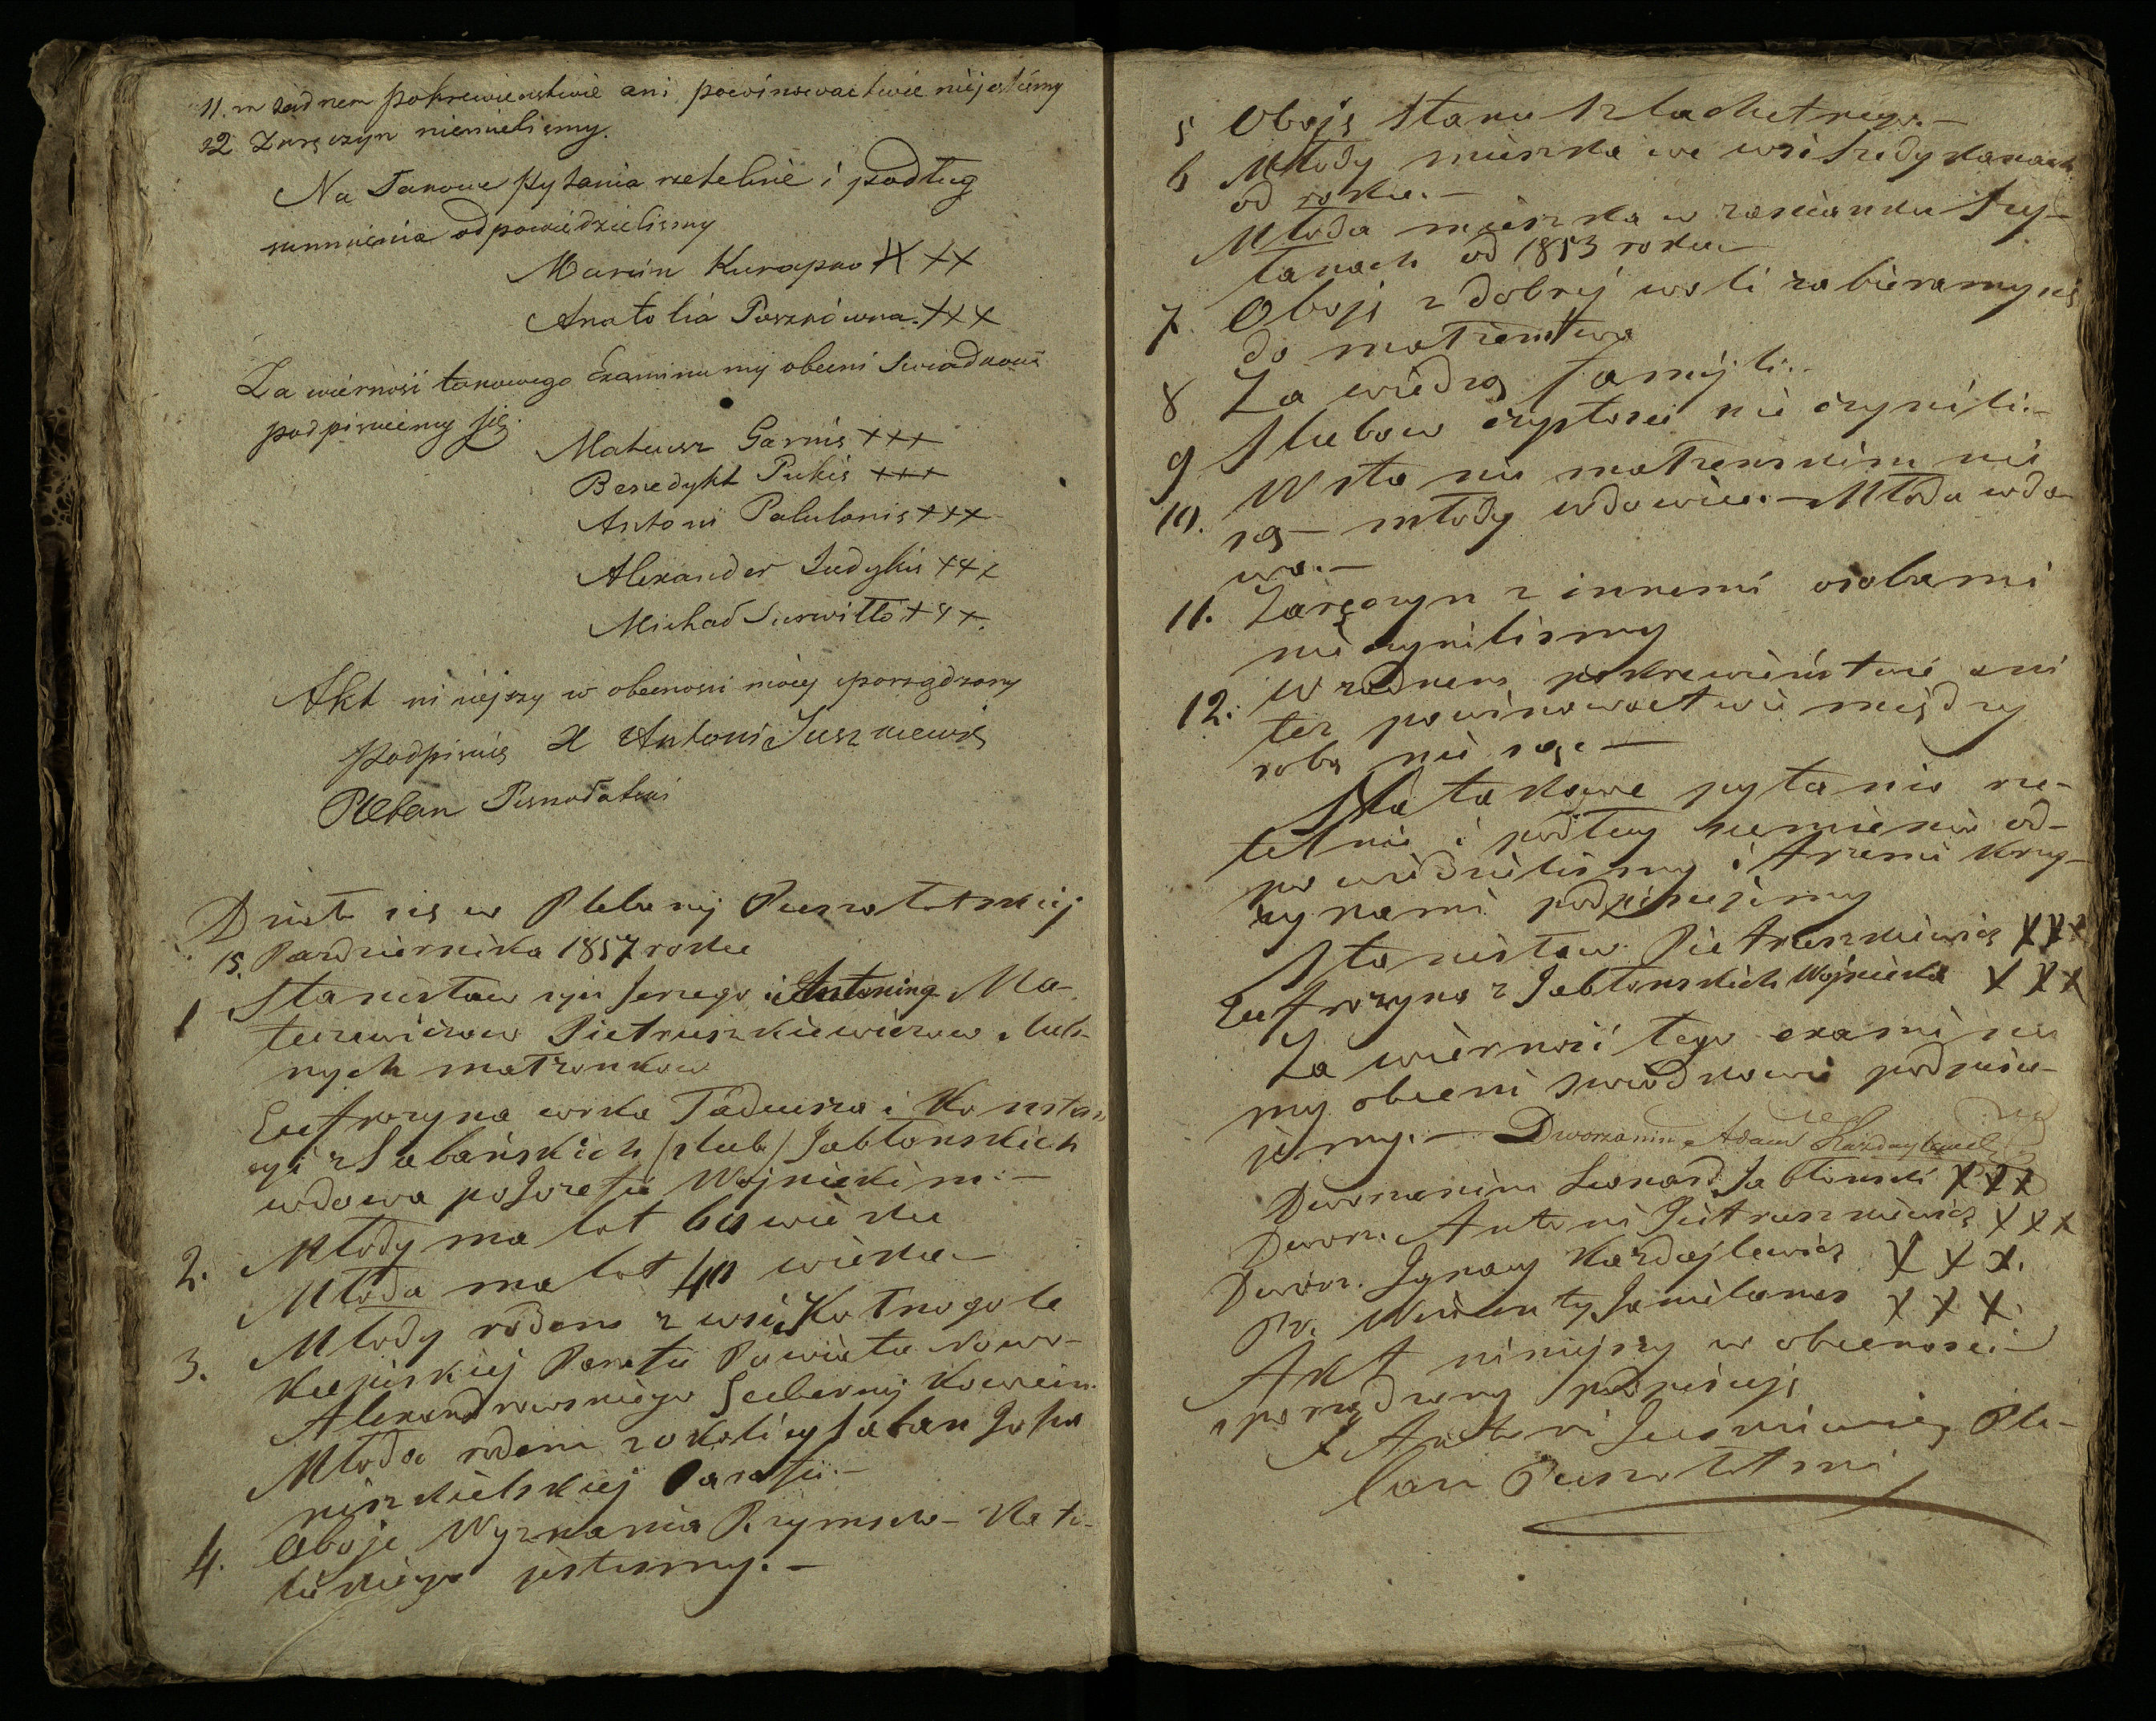 11. w żadnem pokrewienstwie ani powinowactwie niejestesmy
12 Zaręczyn niemielismy.
Na Takowe pytania rzetelnie i podług
sumnienia odpowiedzielismy
Marcin Kurapka XXX
Anatolia Puszkówna. XXX
Za wierność takowego Examinu my obecni Swiadkowie
podpisuiemy się.
Mateusz Garnis +++
Benedykt Pukis +++
Antoni Palulonis +++
Alexander Judykis +++
Michał Surwiłło +++.
Akt niniejszy w obecnosci moiej sporządzony
podpisuię X Antoni Juszkiewicz
Pleban Pusz
Działo się w Plebanij Puszołatskiej
15. Pazdziernika 1857 roku
1 Stanisław syn Jerzego i Antoniny Ma-
teuszewiczow Pietruszkiewiczow slub-
nych małżonkow
Eufrozyna corka Tadeusza i Konstan
cyi z Sabańskich /slub/ Jabłonskich
wdowa po Jozefie Wojnickim.—
2. Młody ma lat 60 wieku
Młoda ma lat 40 wieku—
3. Młody rodem z wsi
Parafii Powiatu Nowo-
Alexandrowskiego Gubernij Kowień.
Młoda rodem z okolicy
Parafii.—
4. Oboje Wyznania Rzymsko-Kato-
lickiego jestesmy.—
5 Oboje stanu szlachetnego.—
6 Młody mieszka we wsi
od roku.—
Młoda mieszka w zascianku Szy-
łanach od 1853 roku—
7. Oboje z dobrej woli zabieramy się
do małżenstwa
8 Za wiedzą familij.—
9 Slubow czystosci nie czynili.—
10. W stanie małżenskim nie
są— młody wdowiec.— Młoda wdo-
wa.—
11. Zaręczyn z innemi osobami
nieczynilismy
12. W żadnem pokrewieństwie ani
tez powinowactwie między
sobą nie są.—
Na takowe pytania rze-
telnie i podług sumienia od-
powiedzielismy i trzemi krzy-
zykami podpisujemy
Stanisław Pietruszkiewicz XXX
Eufrozyna z Jabłonskich Wojnicka XXX
Za wierność tego examinu
my obecni swiadkowie podpisu-
jemy.— Dworzanin Adam
Dworzanin Leonard Jabłonski XXX
Dworz. Antoni Pietruszkiewicz XXX
Dworz. Ignacy Kardajlewicz XXX.
Wincenty XXX.
Akt niniejszy w obecnosci
sporządzony podpisuję
X Antoni Juszkiewicz Ple-
ban Puszołatski